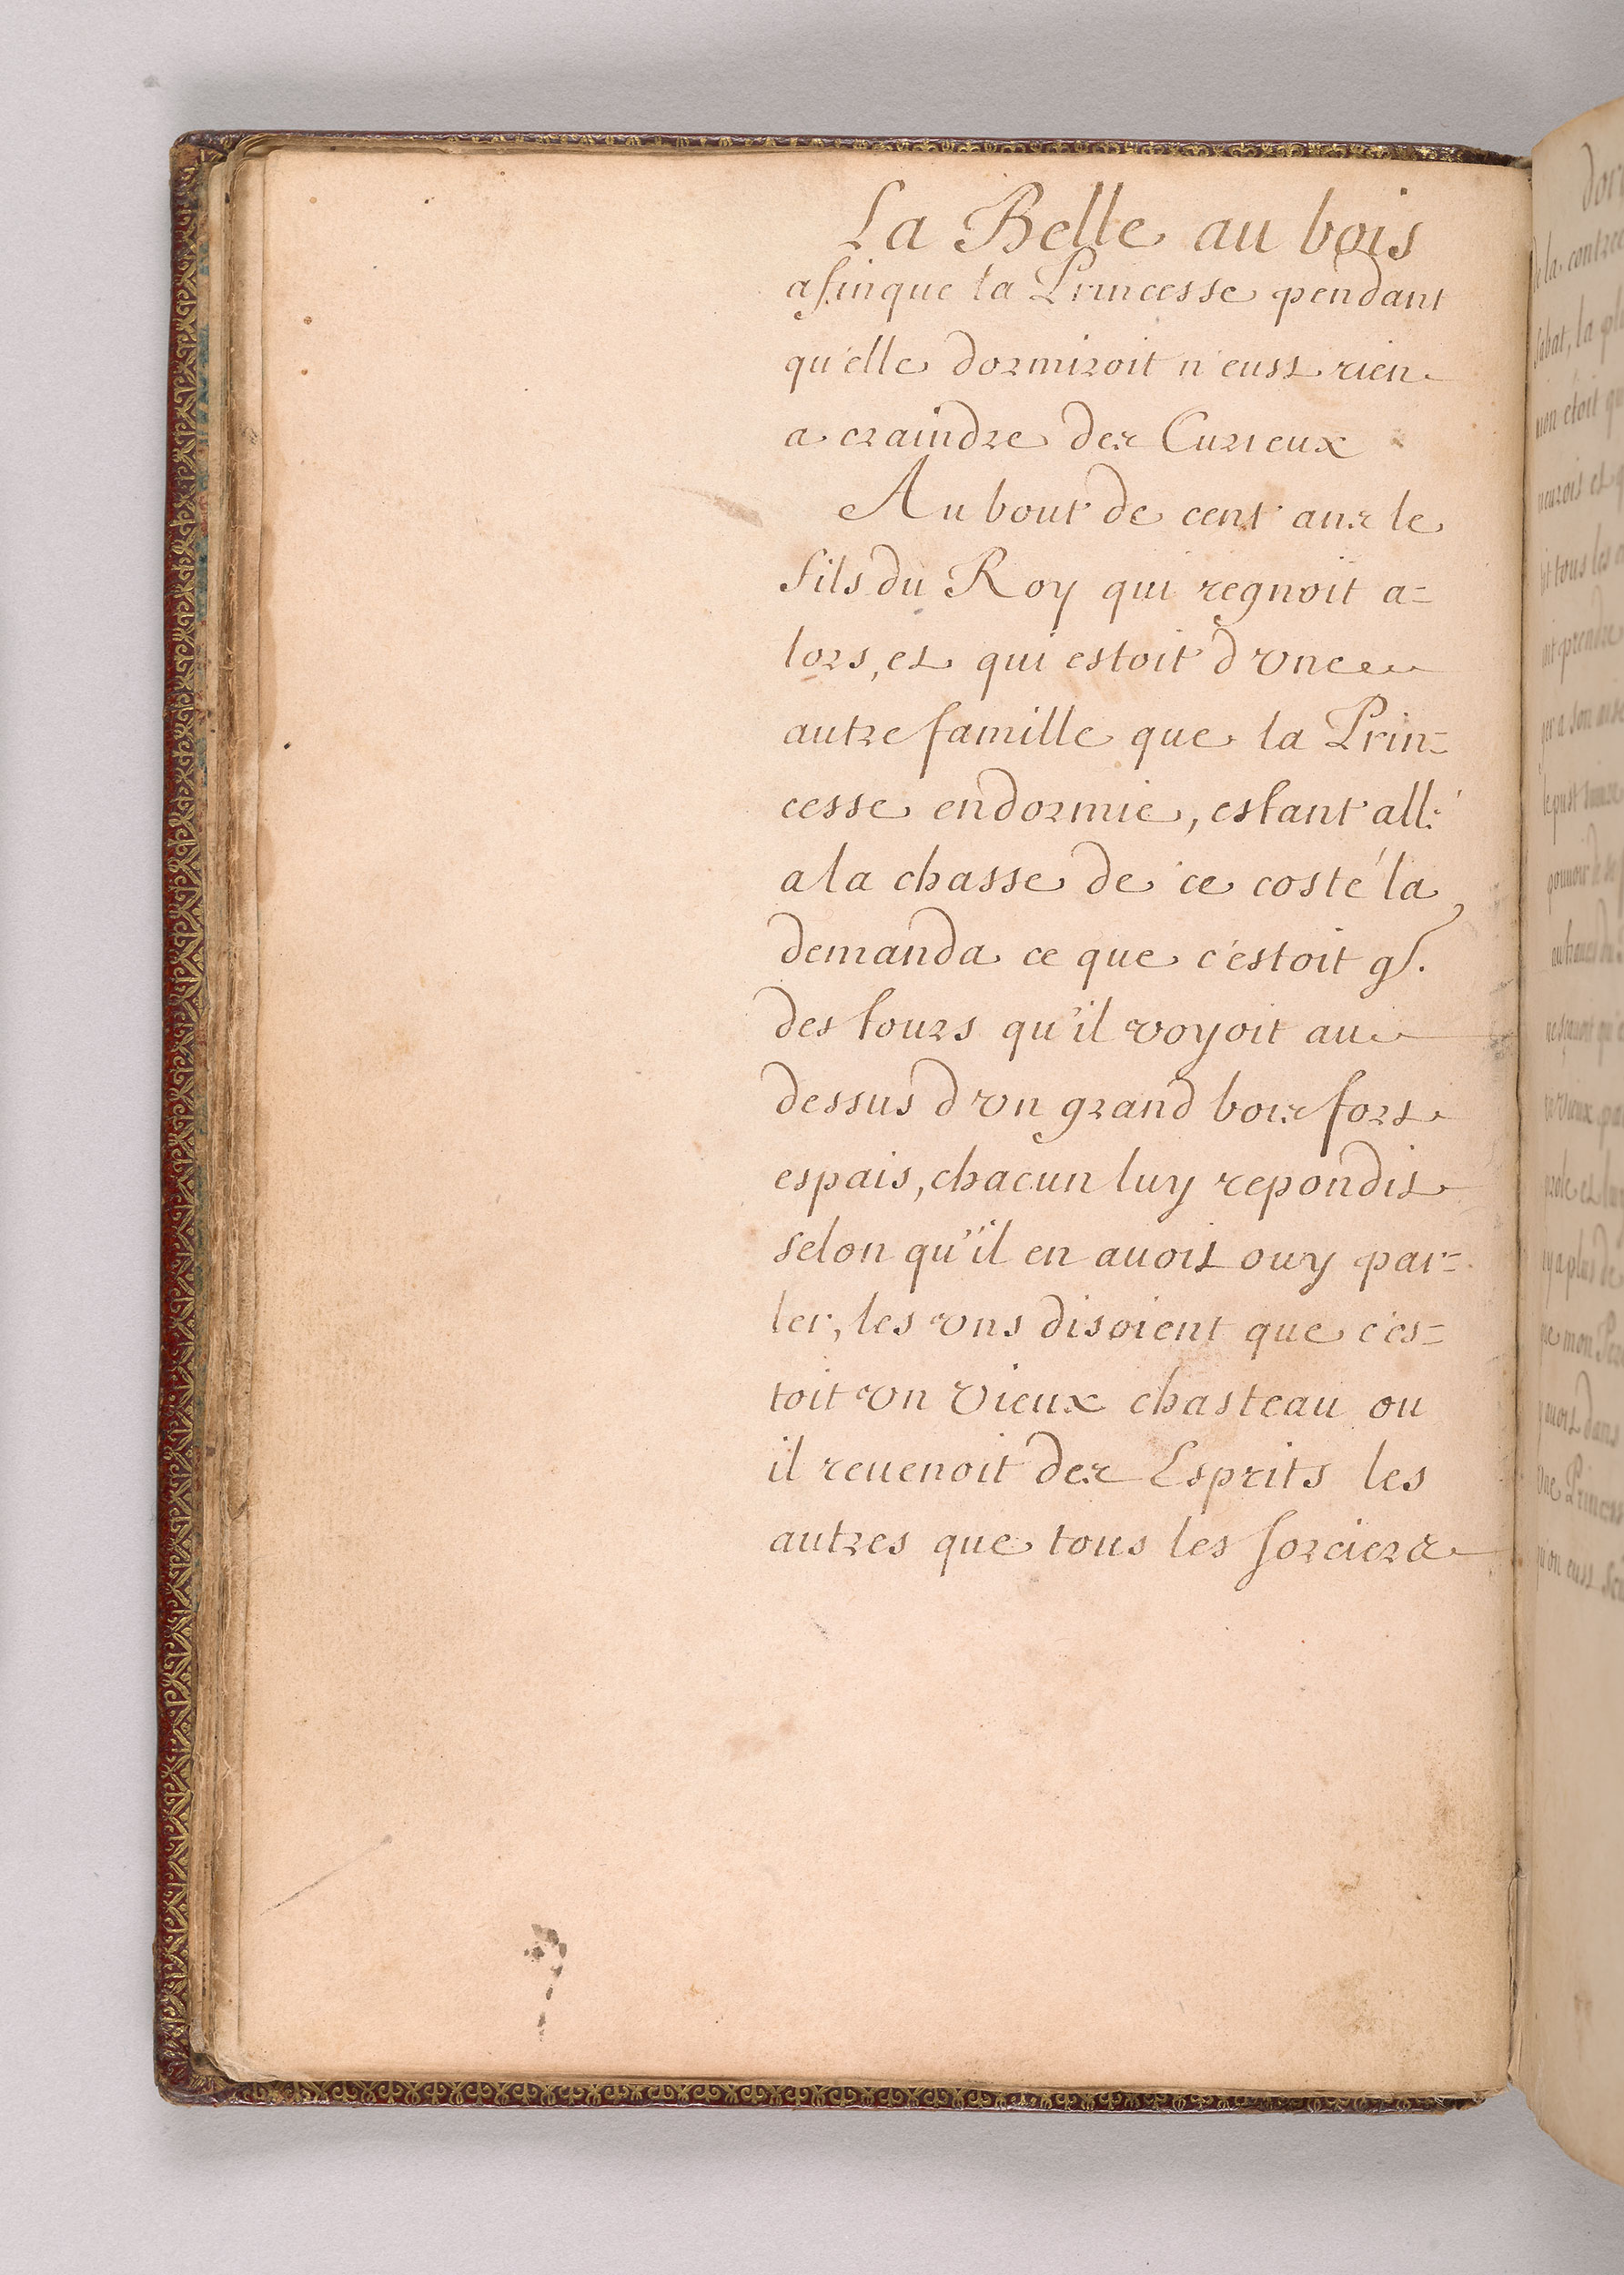 La Belle au bois
afinque la Princesse pendant
qu'elle dormiroit n'eust rien
a craindre des Curieux
Au bout de cent ans le
fils du Roy qui regnoit a=
lors, et qui estoit d'vne
autre famille que la Prin=
cesse endormie, estant allé
a la chasse de ce costé la,
demanda ce que c'estoit q
des tours qu'il voyoit au
dessus d'vn grand bois fort
espais, chacun luy repondit
selon qu'il en auoit ouy par=
ler, les vns disoient que c'es=
toit vn vieux chasteau ou
il reuenoit des Esprits les
autres que tous les sorciers
de la contrée
sabat, la
tous les
prendre
a son aise
pouuoir
vieux
plus de
mon Pere
auoit dans
vne Princesse
eust